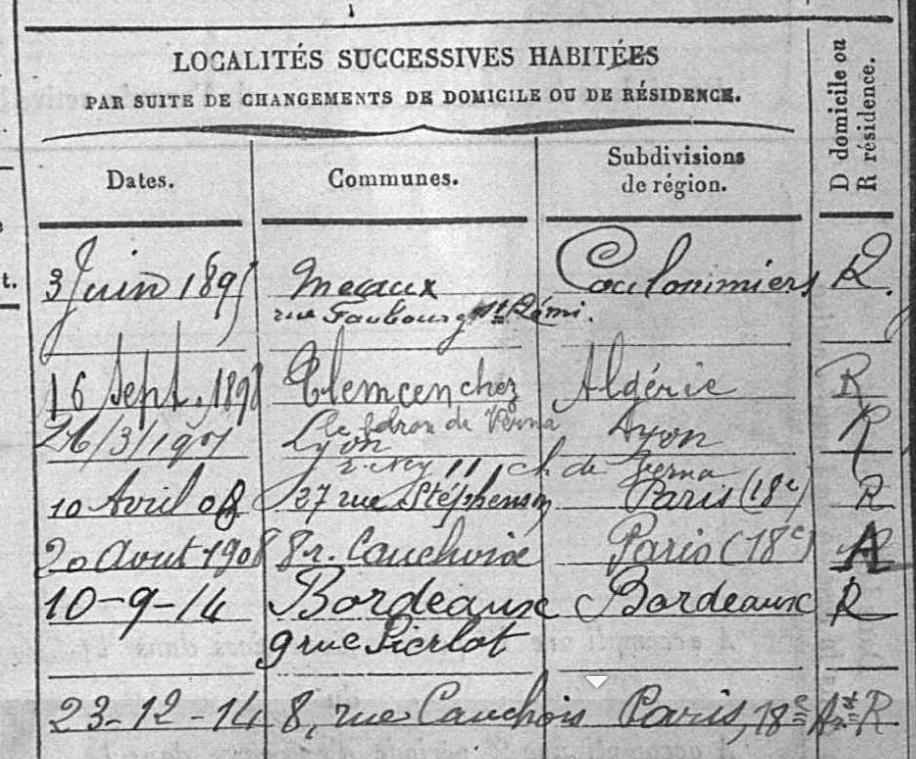 LOCALITÉS SUCCESSIVES HABITÉES
PAR SUITE DE CHANGEMENTS DE DOMICILE OU DE RÉSIDENCE.
Dates. Communes. Subdivisions de région. D domicile ou R résidence.
3 Juin 1895 Meaux Coulommiers R.
rue Faubourg St Rémi.
16 Sept. 1898 Tlemcen chez Algérie R
le Bdron de Verna
26/3/1901 Lyon Lyon R
r. Ney 11, ch de Verna
10 Avril 08 27 rue Stéphenson Paris (18e) R
20 Aout 1908 8 r. Cauchoix Paris (18e)
10-9-14 Bordeaux Bordeaux R
9 rue Pierlot
23-12-14 8, rue Cauchois Paris, 18e R